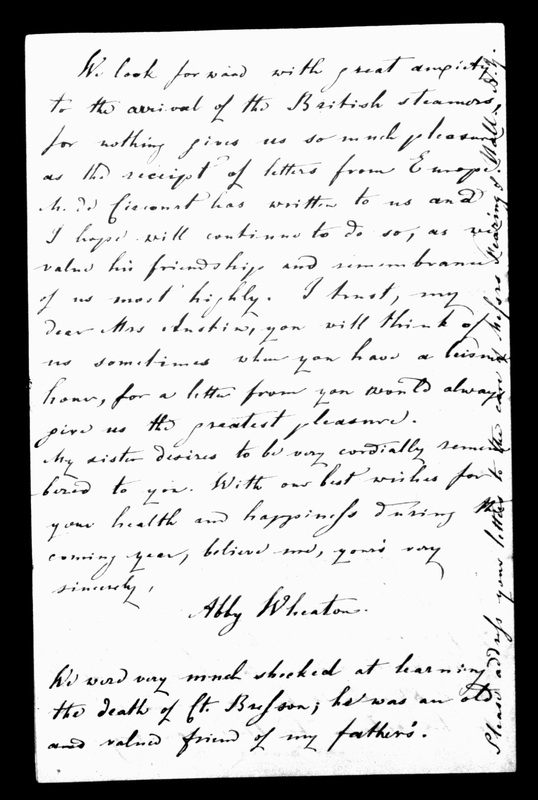 We look forward with great anxiety
to the arrival of the British steamers,
for nothing gives us so much pleasure
as the receipt of letters from Europe
M. de Circourt has written to us and
I hope will continue to do so, as we
value his friendship and remembrance
of us most highly. I trust, my
dear Mrs Austin, you will think of
us sometimes when you have a leisure
hour, for a letter from you would always
give us the greatest pleasure.
My sister desires to be very cordially remem
bered to you. With our best wishes for
your health and happiness during the
coming year, believe me, yours very
sincerely,
Abby Wheaton.
We were very much shocked at learning
the death of Ct. Bresson; he was an old
and valued friend of my father's.
Please address your letters to the care of Messrs Dearing & Wall St. N.Y.